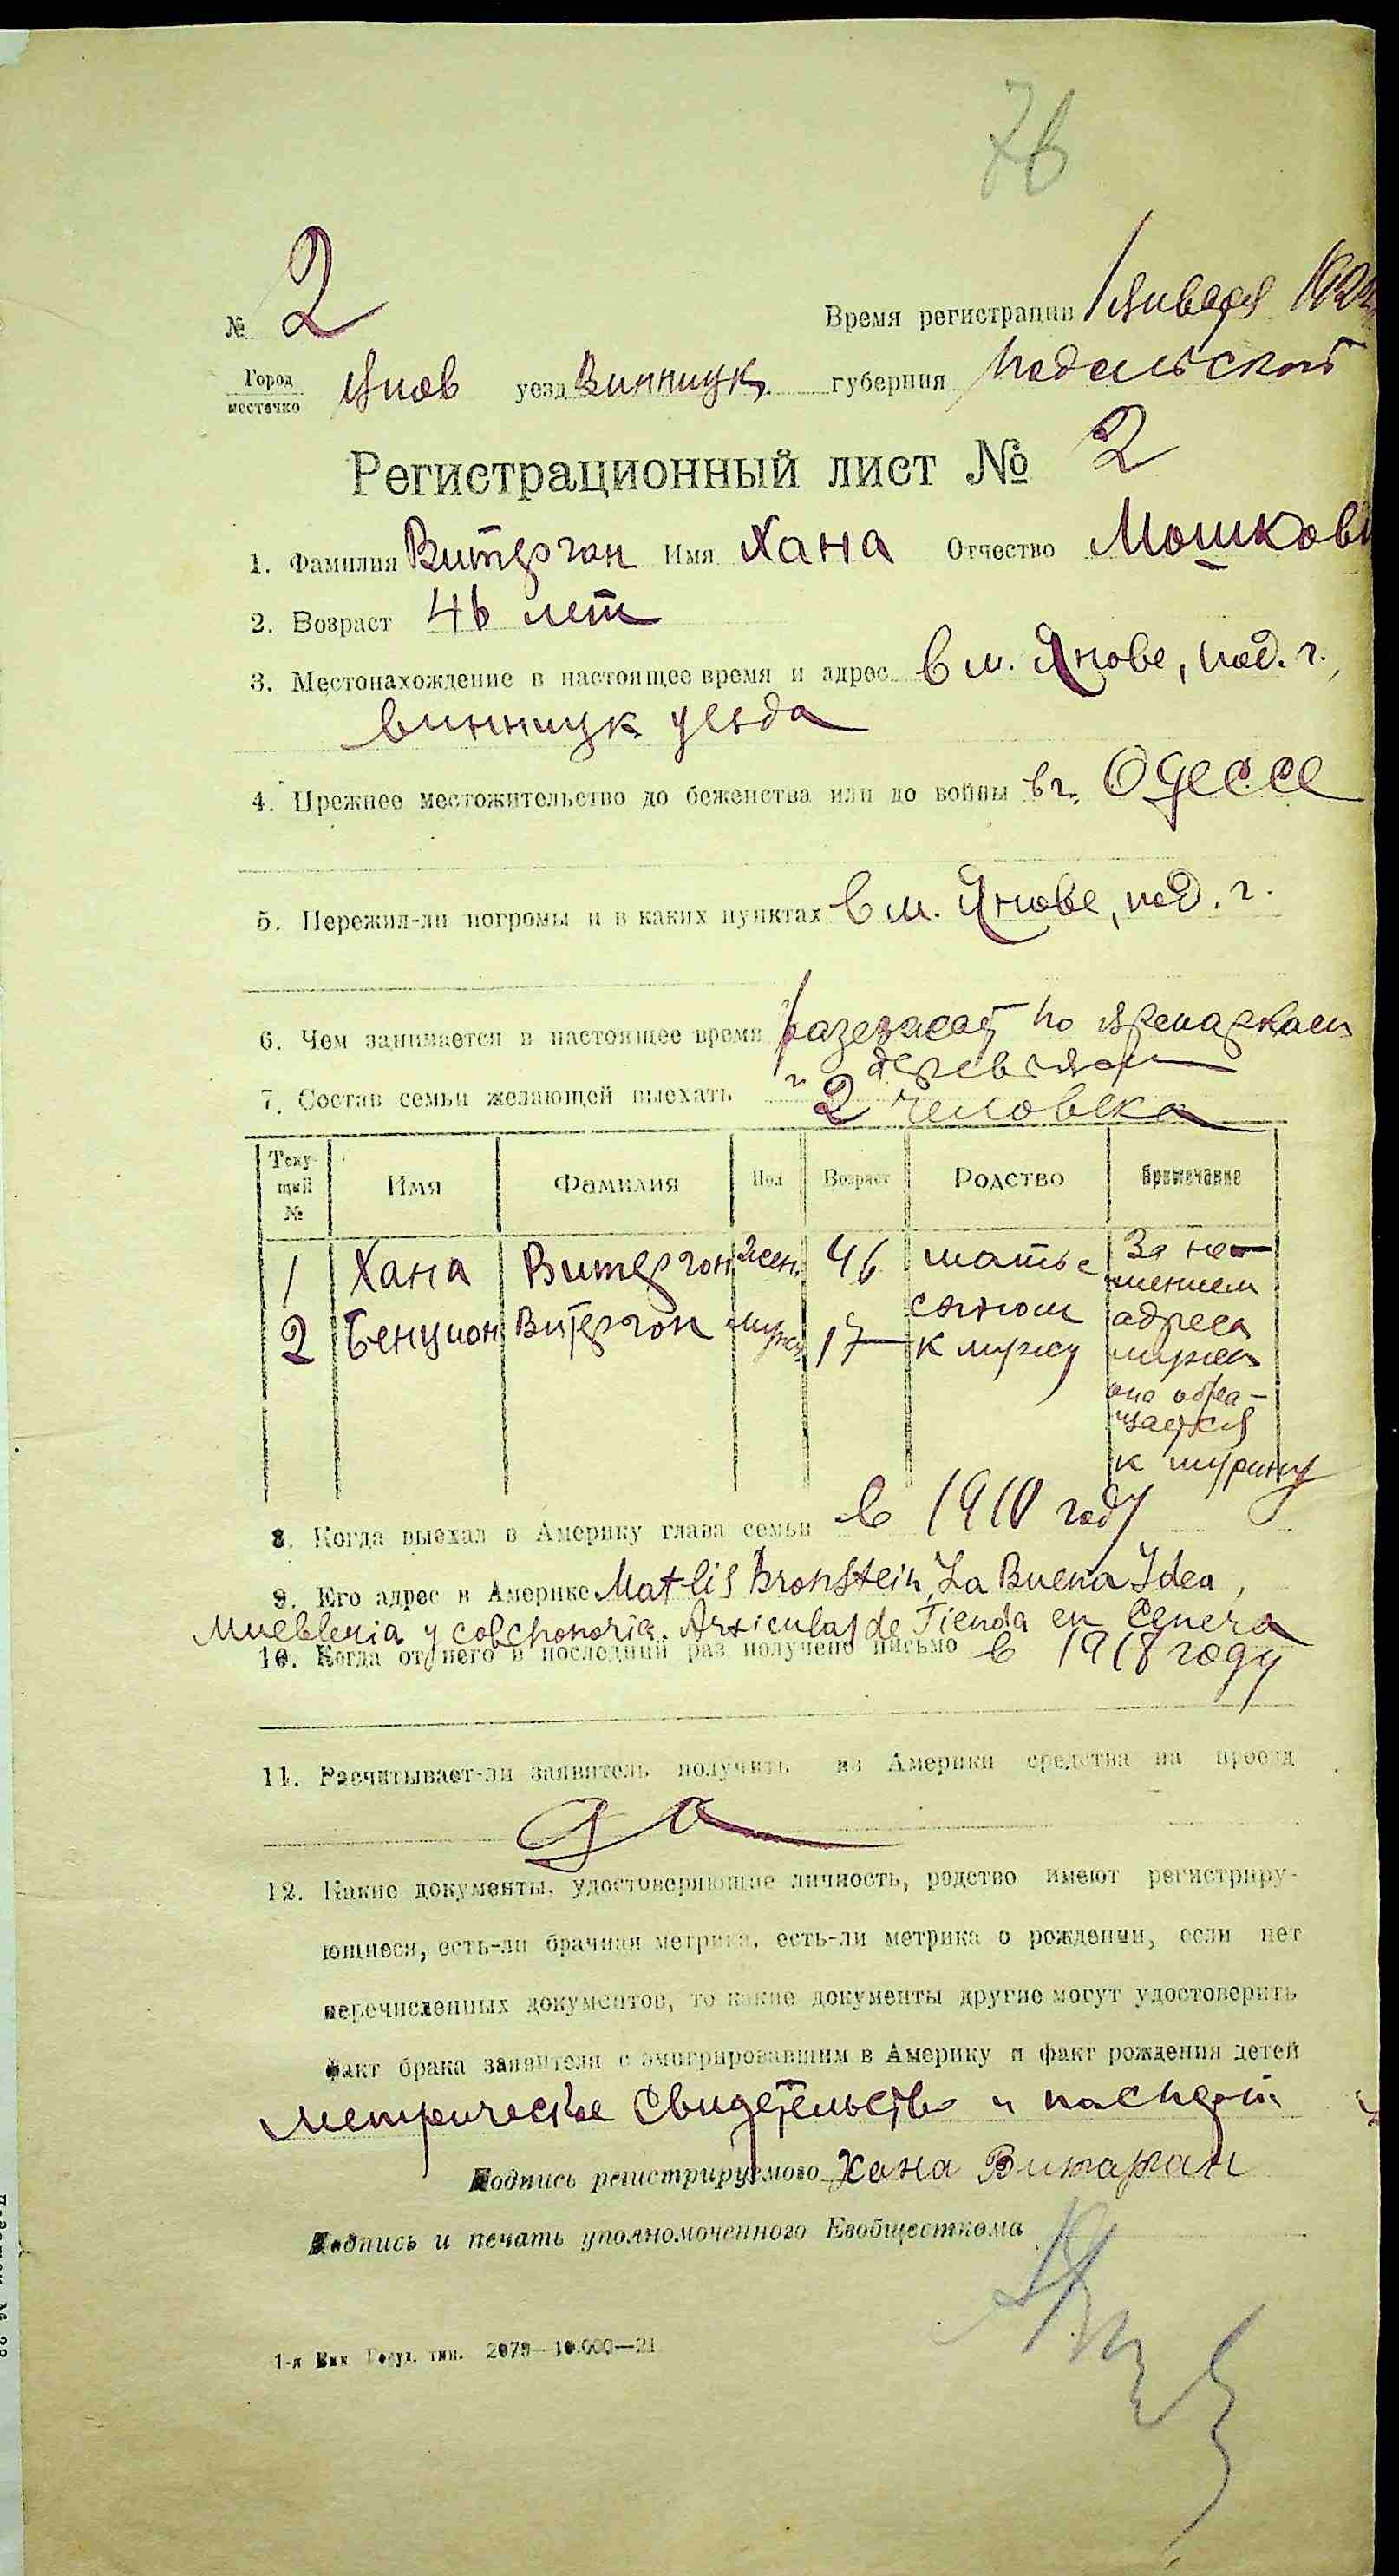 76
№ 2
Время регистрации 1 января 192
Город
местечко Янов уезд Винницк. губерния Подольской
Регистрационный лист № 2
1. Фамилия Витергон Имя Хана Отчество Мошков
2. Возраст 46 лет
3. Местонахождение в настоящее время и адрес в м. Янове, под. г.,
винницк уезда
4. Прежнее местожительство до беженства или до войны в г. Одессе
5. Пережил-ли погромы и в каких пунктах в м. Янове, под. г.
6. Чем занимается в настоящее время разезжает по ярмаркам
и деревням
7. Состав семьи желающей выехать 2 человека
Теку-
щий
№ Имя Фамилия Пол Возраст Родство Примечание
1 Хана Витергон жен. 46 мать с За не-
имением
2 Бенцион Витергон муж. 17 сыном адреса
к мужу мужа
она обра-
щается
к шурину
8. Когда выехал в Америку глава семьи в 1910 году
9. Его адрес в Америке Matlis Bronstein, La Buena Idea,
Muebleria y colchonoria. Arxiculas de Tienda en Cenera
10. Когда от него в последний раз получено письмо в 1918 году
11. Расчитывает-ли заявитель получить из Америки средства на проезд
да
12. Какие документы, удостоверяющие личность, родство имеют регистриру-
ющиеся, есть-ли брачная метрика, есть-ли метрика о рождении, если нет
перечисленных документов, то какие документы другие могут удостоверить
факт брака заявителя с эмигрировавшим в Америку и факт рождения детей
метрическое свидетельство и паспорт
Подпись регистрируемого Хана Витарган
Подпись и печать уполномоченного Евобщесткома
1-я Вин Госуд. тип. 2079—10.000—21